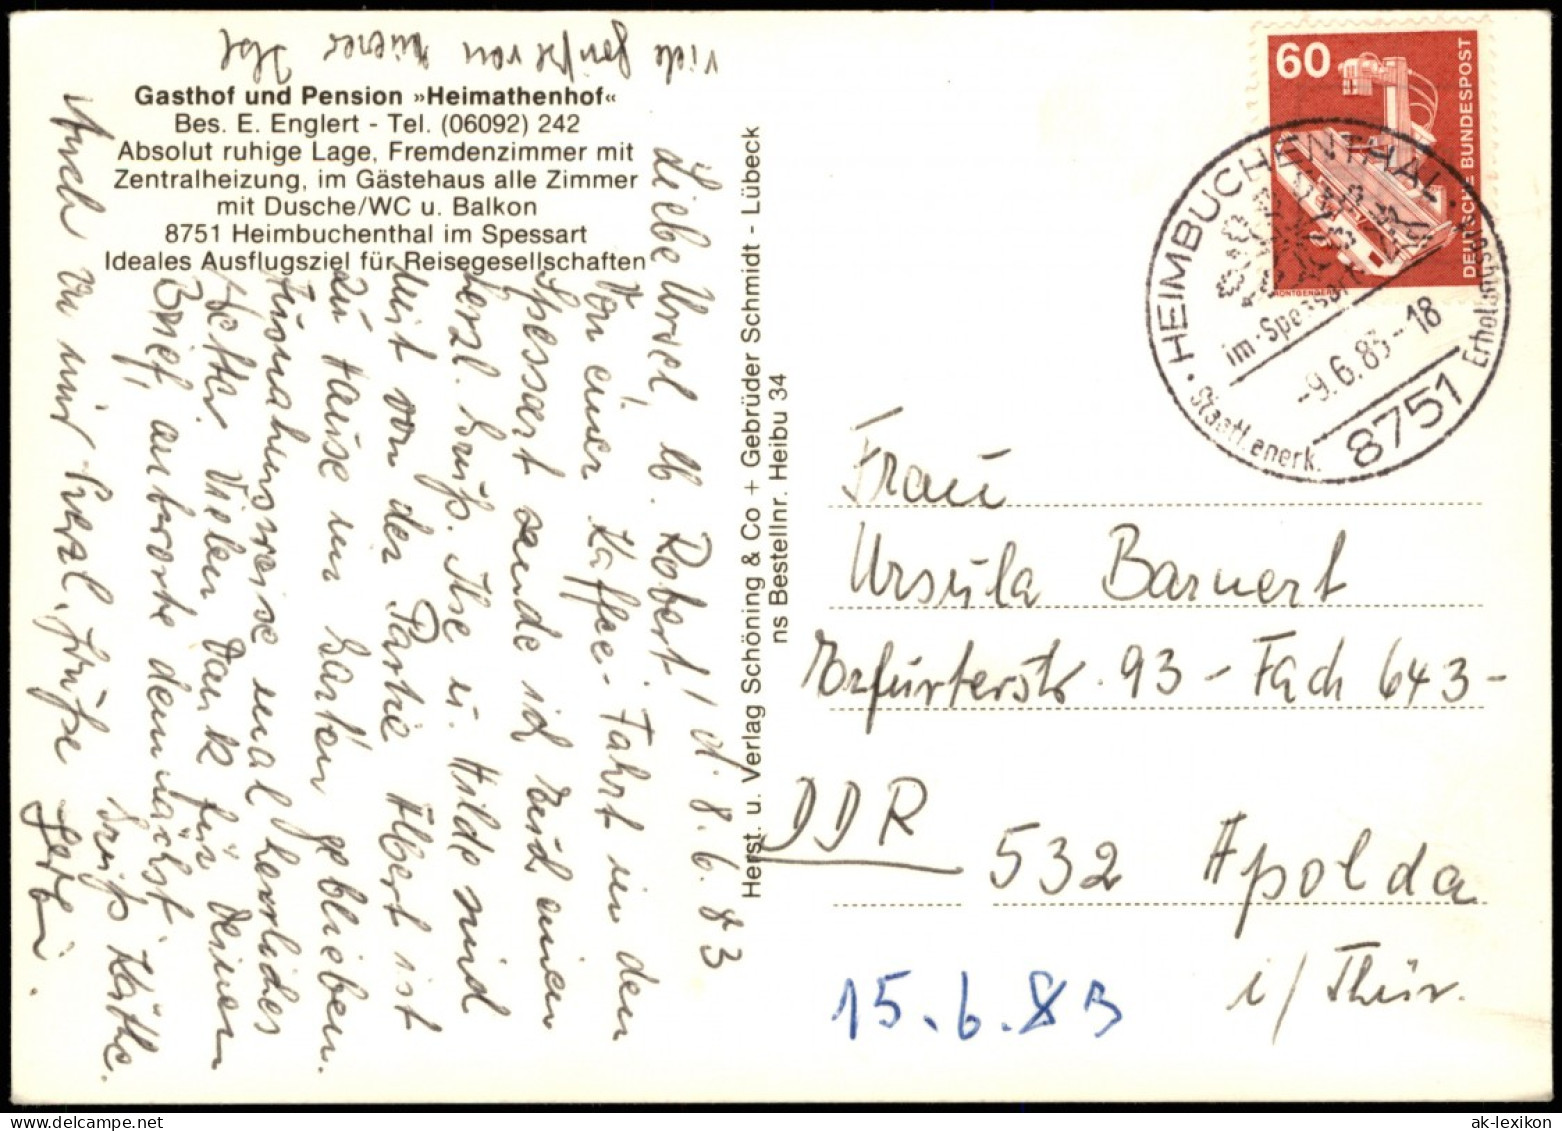 Gasthof und Pension »Heimathenhof«
Bes. E. Englert - Tel. (06092) 242
Absolut ruhige Lage, Fremdenzimmer mit
Zentralheizung, im Gästehaus alle Zimmer
mit Dusche/WC u. Balkon
8751 Heimbuchenthal im Spessart
Ideales Ausflugsziel für Reisegesellschaften
d. 8.6.83
Liebe Ursel, lb. Robert!
Von einer Kaffee-Fahrt in den
Spessart sende ich Euch einen
herzl. Gruß. Ilse u. Hilde sind
mit von der Partie Albert ist
zu Hause im Garten geblieben.
Ausnahmsweise mal herrliches
Wetter. Vielen Dank für Deinen
Brief, antworte demnächst.
Gruß Käthe.
Auch von mir herzl. Grüße
viele Grüße von
Herst. u. Verlag Schöning & Co + Gebrüder Schmidt - Lübeck
ns Bestellnr. Heibu 34
60
DEUTSCHE BUNDESPOST
HEIMBUCHENTHAL
im Spessart
-9.6.83-18
8751
Staatl. anerk.
Frau
Ursula Barnert
Erfurterstr. 93 - Fach 643 -
DDR
532 Apolda
i/Thür.
15.6.83
ak-lexikon